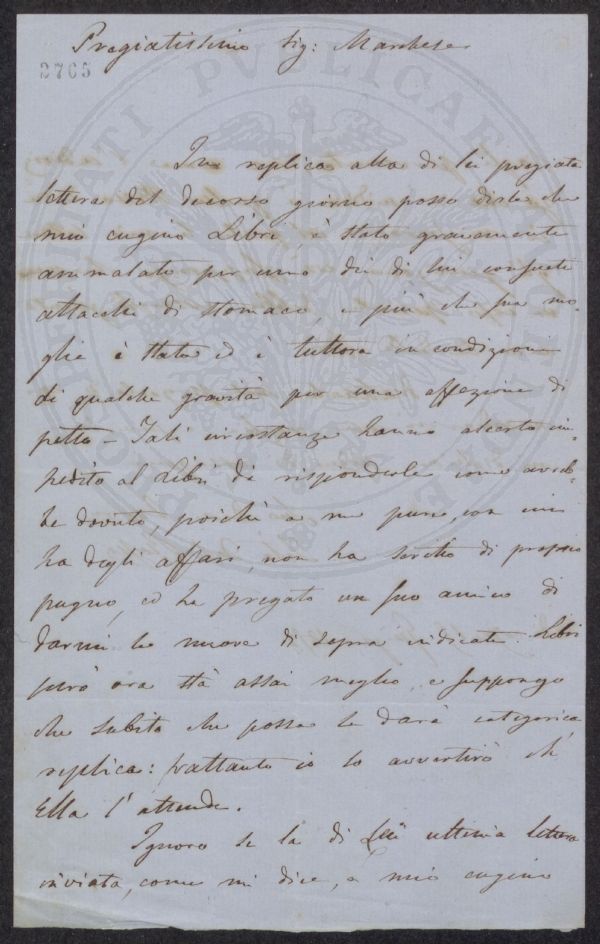 Pregiatissimo Sig: Marchese
2765
In replica alla di lei pregiata
lettera del decorso giorno posso dirle che
mio cugino Libri, è stato gravemente
ammalato per uno dei di lui consueti
attacchi di stomaco, e più che sua mo-
glie è stata ed è tuttora in condizioni
di qualche gravità per una affezione di
petto – Tali circostanze hanno al certo im-
pedito al Libri di risponderle come avreb-
be dovuto, poichè a me pure, con cui
ha degli affari, non ha scritto di proprio
pugno, ed ha pregato un suo amico di
darmi le nuove di sopra indicate. Libri
però ora stà assai meglio, e suppongo
che subito che possa le darà categorica
replica: frattanto io lo avvertirò ch'
Ella l'attende.
Ignoro se la di Lei ultima lettera
inviata, come mi dice, a mio cugino
PIO FELICITATI PUBLICAE